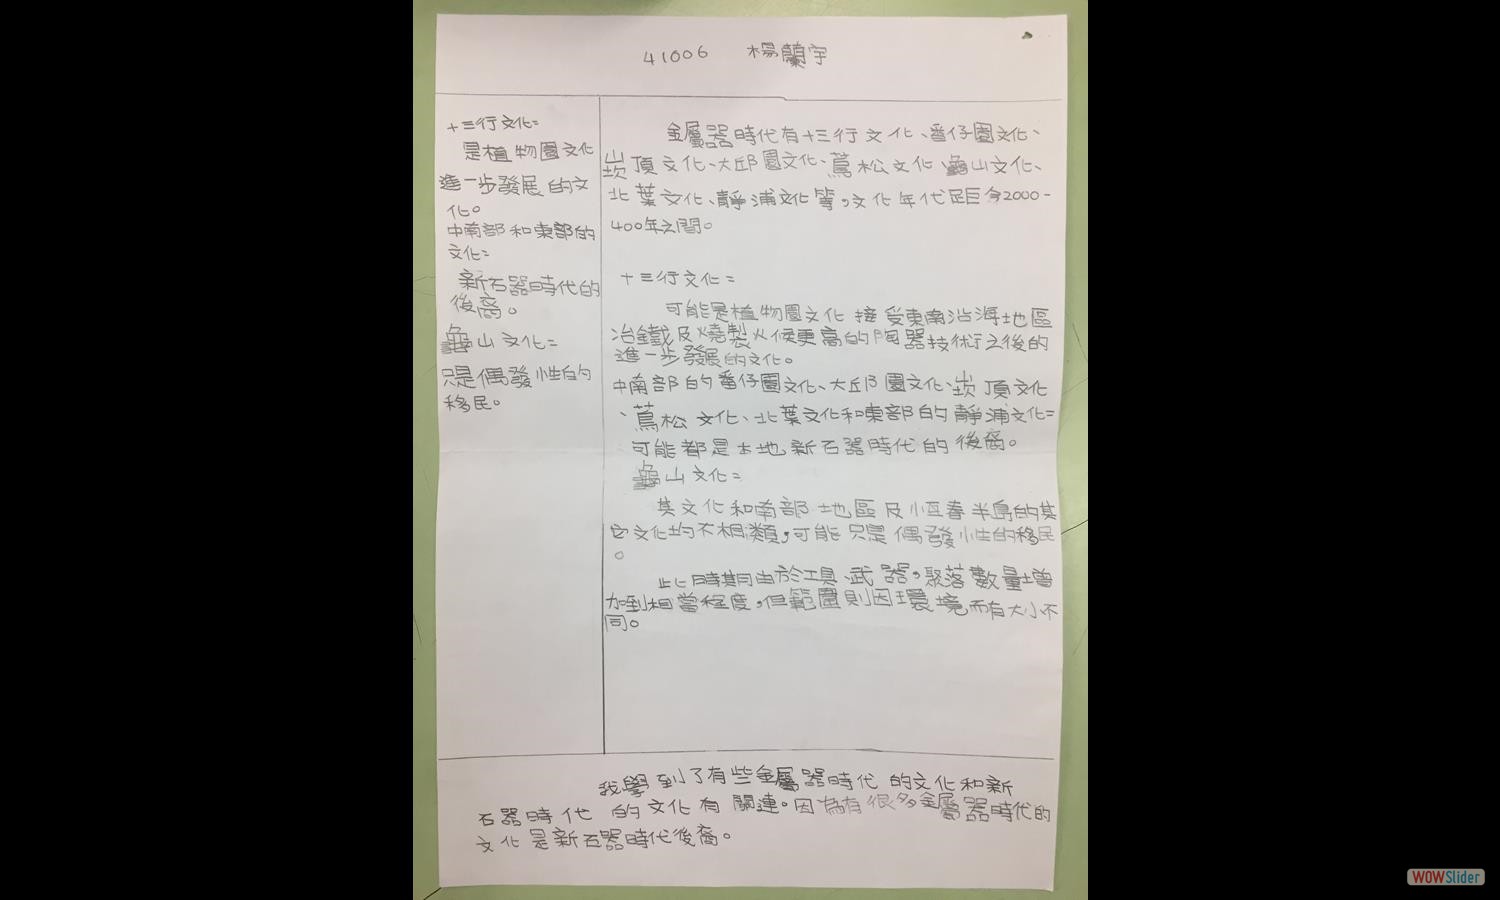 41006 楊蘭宇
十三行文化=
是植物園文化
進一步發展的文
化。
中南部和東部的
文化=
新石器時代的
後裔。
龜山文化=
只是偶發性的
移民。
金屬器時代有十三行文化、番仔園文化、
崁頂文化、大邱園文化、蔦松文化、龜山文化、
北葉文化、靜浦文化等,文化年代距今2000-
400年之間。
十三行文化=
可能是植物園文化接受東南沿海地區
冶鐵及燒製火候更高的陶器技術之後的
進一步發展的文化。
中南部的番仔園文化、大邱園文化、崁頂文化
、蔦松文化、北葉文化和東部的靜浦文化=
可能都是本地新石器時代的後裔。
龜山文化=
其文化和南部地區及恆春半島的其
它文化均不相類,可能只是偶發性的移民
。
此時期由於工具、武器,聚落數量增
加到相當程度,但範圍則因環境而有大小不
同。
我學到了有些金屬器時代的文化和新
石器時代的文化有關連。因為有很多金屬器時代的
文化是新石器時代後裔。
WOWSlider